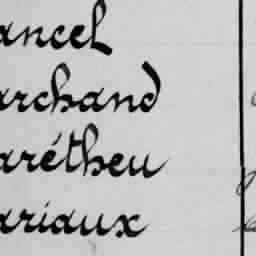 ancel
archand
arétheu
ariaux